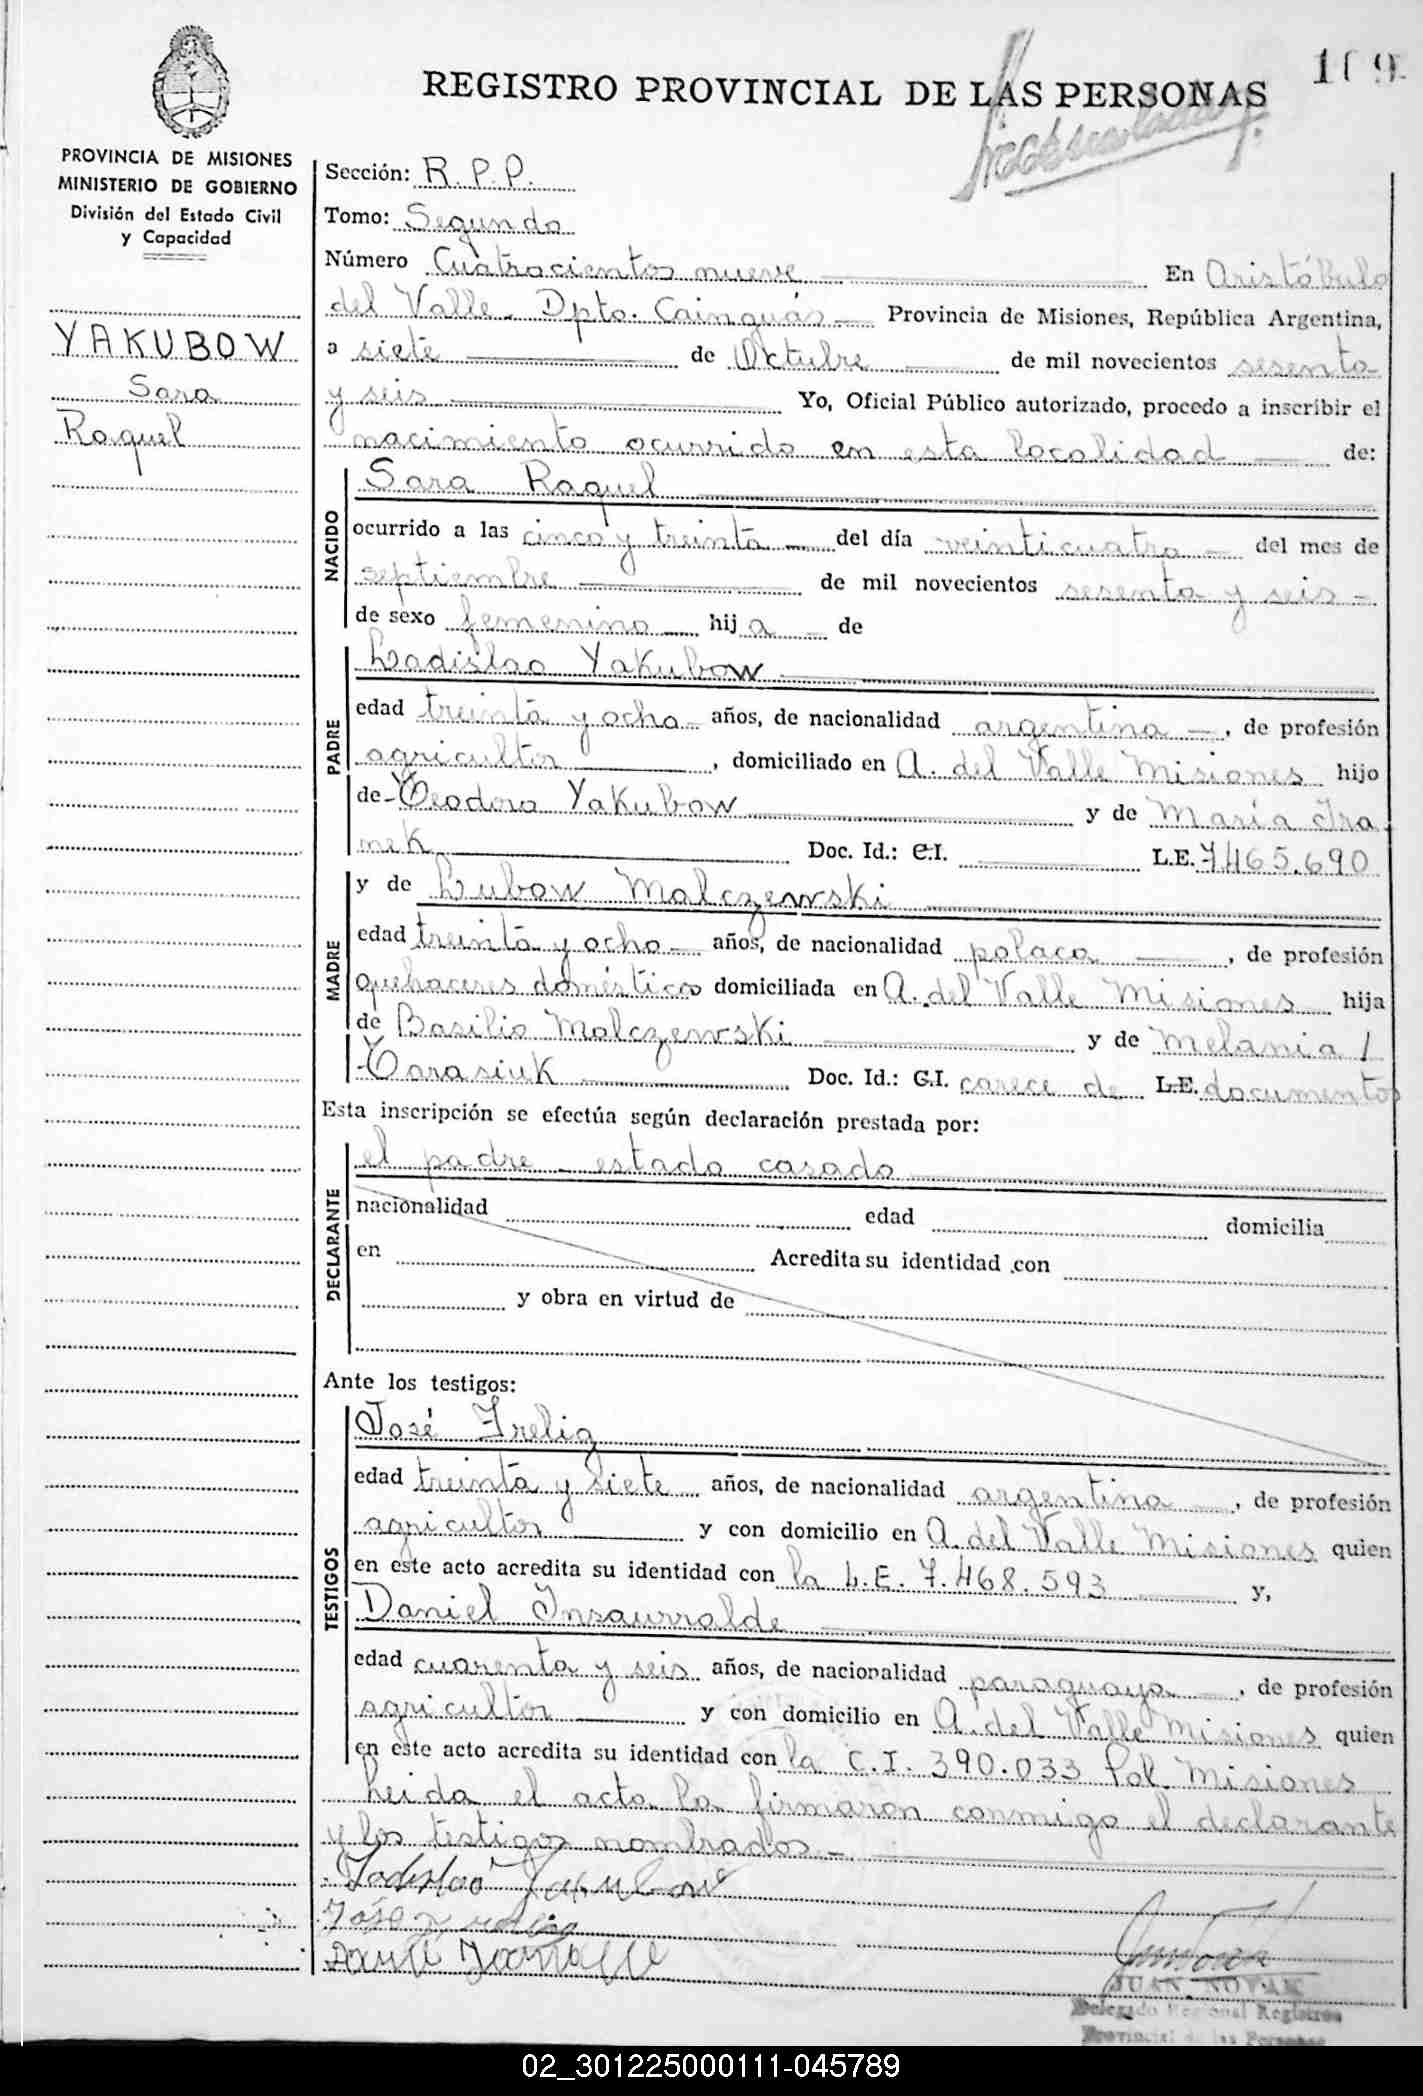 REGISTRO PROVINCIAL DE LAS PERSONAS
PROVINCIA DE MISIONES
MINISTERIO DE GOBIERNO
División del Estado Civil
y Capacidad
YAKUBOW
Sara
Raquel
Sección: R.P.P.
Tomo: Segundo
Número Cuatrocientos nueve En Aristóbulo
del Valle. Dpto. Cainguás Provincia de Misiones, República Argentina,
a siete de Octubre de mil novecientos sesenta
y seis Yo, Oficial Público autorizado, procedo a inscribir el
nacimiento ocurrido en esta localidad de:
NACIDO
Sara Raquel
ocurrido a las cinco y treinta del día veinticuatro del mes de
septiembre de mil novecientos sesenta y seis
de sexo femenino hija de
PADRE
Ladislao Yakubow
edad treinta y ocho años, de nacionalidad argentina, de profesión
agricultor, domiciliado en A. del Valle Misiones hijo
de Teodoro Yakubow y de María Ira-
mek Doc. Id.: C.I. L.E. 7465.690
MADRE
y de Lubow Malczewski
edad treinta y ocho años, de nacionalidad polaca, de profesión
quehaceres domésticos domiciliada en A. del Valle Misiones hija
de Basilio Malczewski y de Melania /
Tarasiuk Doc. Id.: C.I. carece de L.E. documentos
Esta inscripción se efectúa según declaración prestada por:
DECLARANTE
el padre - estado casado
nacionalidad edad domicilia
en Acredita su identidad con
y obra en virtud de
Ante los testigos:
TESTIGOS
José Freliz
edad treinta y siete años, de nacionalidad argentina, de profesión
agricultor y con domicilio en A. del Valle Misiones quien
en este acto acredita su identidad con la L.E. 7.468.593 y,
Daniel Insaurralde
edad cuarenta y seis años, de nacionalidad paraguaya, de profesión
agricultor y con domicilio en A. del Valle Misiones quien
en este acto acredita su identidad con la C.I. 390.033 Pol. Misiones
Leida el acta la firmaron conmigo el declarante
y los testigos nombrados.-
Ladislao Yakubow
José
JUAN NOVAK
Delegado Regional Registro
Provincial de las Personas
02_301225000111-045789